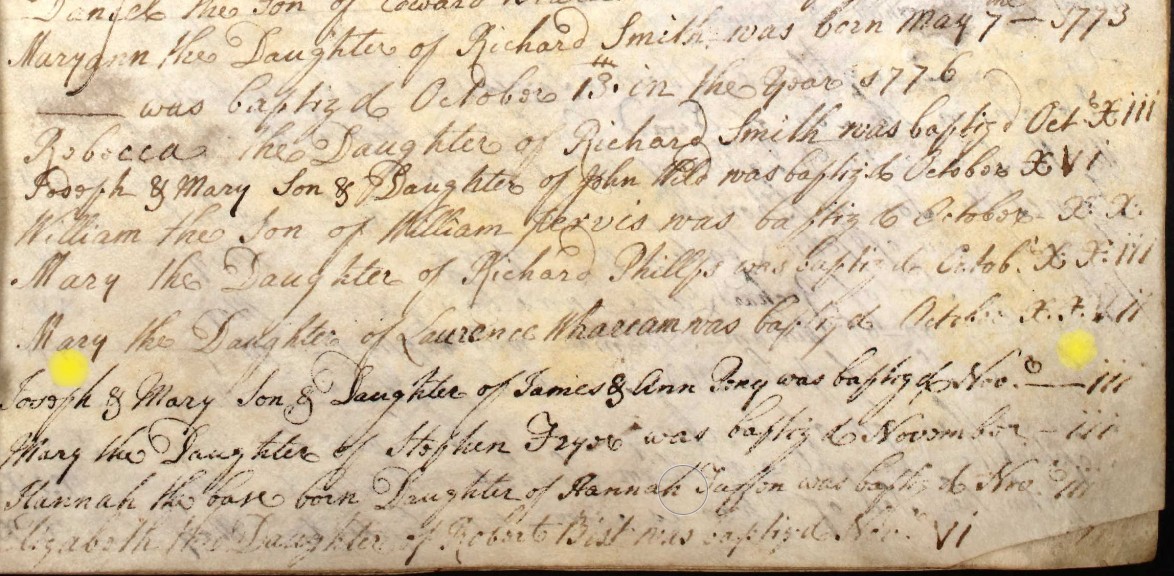 Daniel the Son of Edward
Maryann the Daughter of Richard Smith was born May 7th — 1773
was baptizd October 13th in the Year 1776
Rebecca the Daughter of Richard Smith was baptizd Octr Xiii
Joseph & Mary Son & Daughter of John Wild was baptizd October XVi
William the Son of William Jervis was baptizd October X X
Mary the Daughter of Richard Phillps was baptizd Octobr X X iii
Mary the Daughter of Laurence Whareham was baptizd October X X
Joseph & Mary Son & Daughter of James & Ann Pony was baptizd Novr — iii
Mary the Daughter of Stephen Fryer was baptizd November – iii
Hannah the base born Daughter of Hannah was baptizd Novr iii
Elizabeth the Daughter of Robert Bist was baptizd Novr Vi